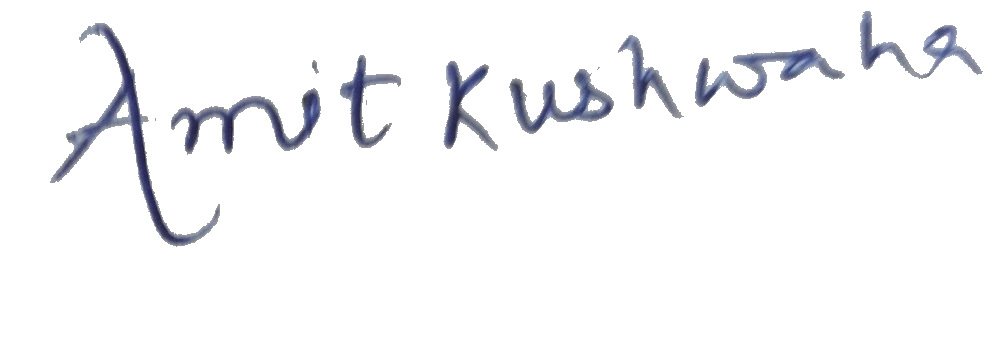 Amit Kushwaha